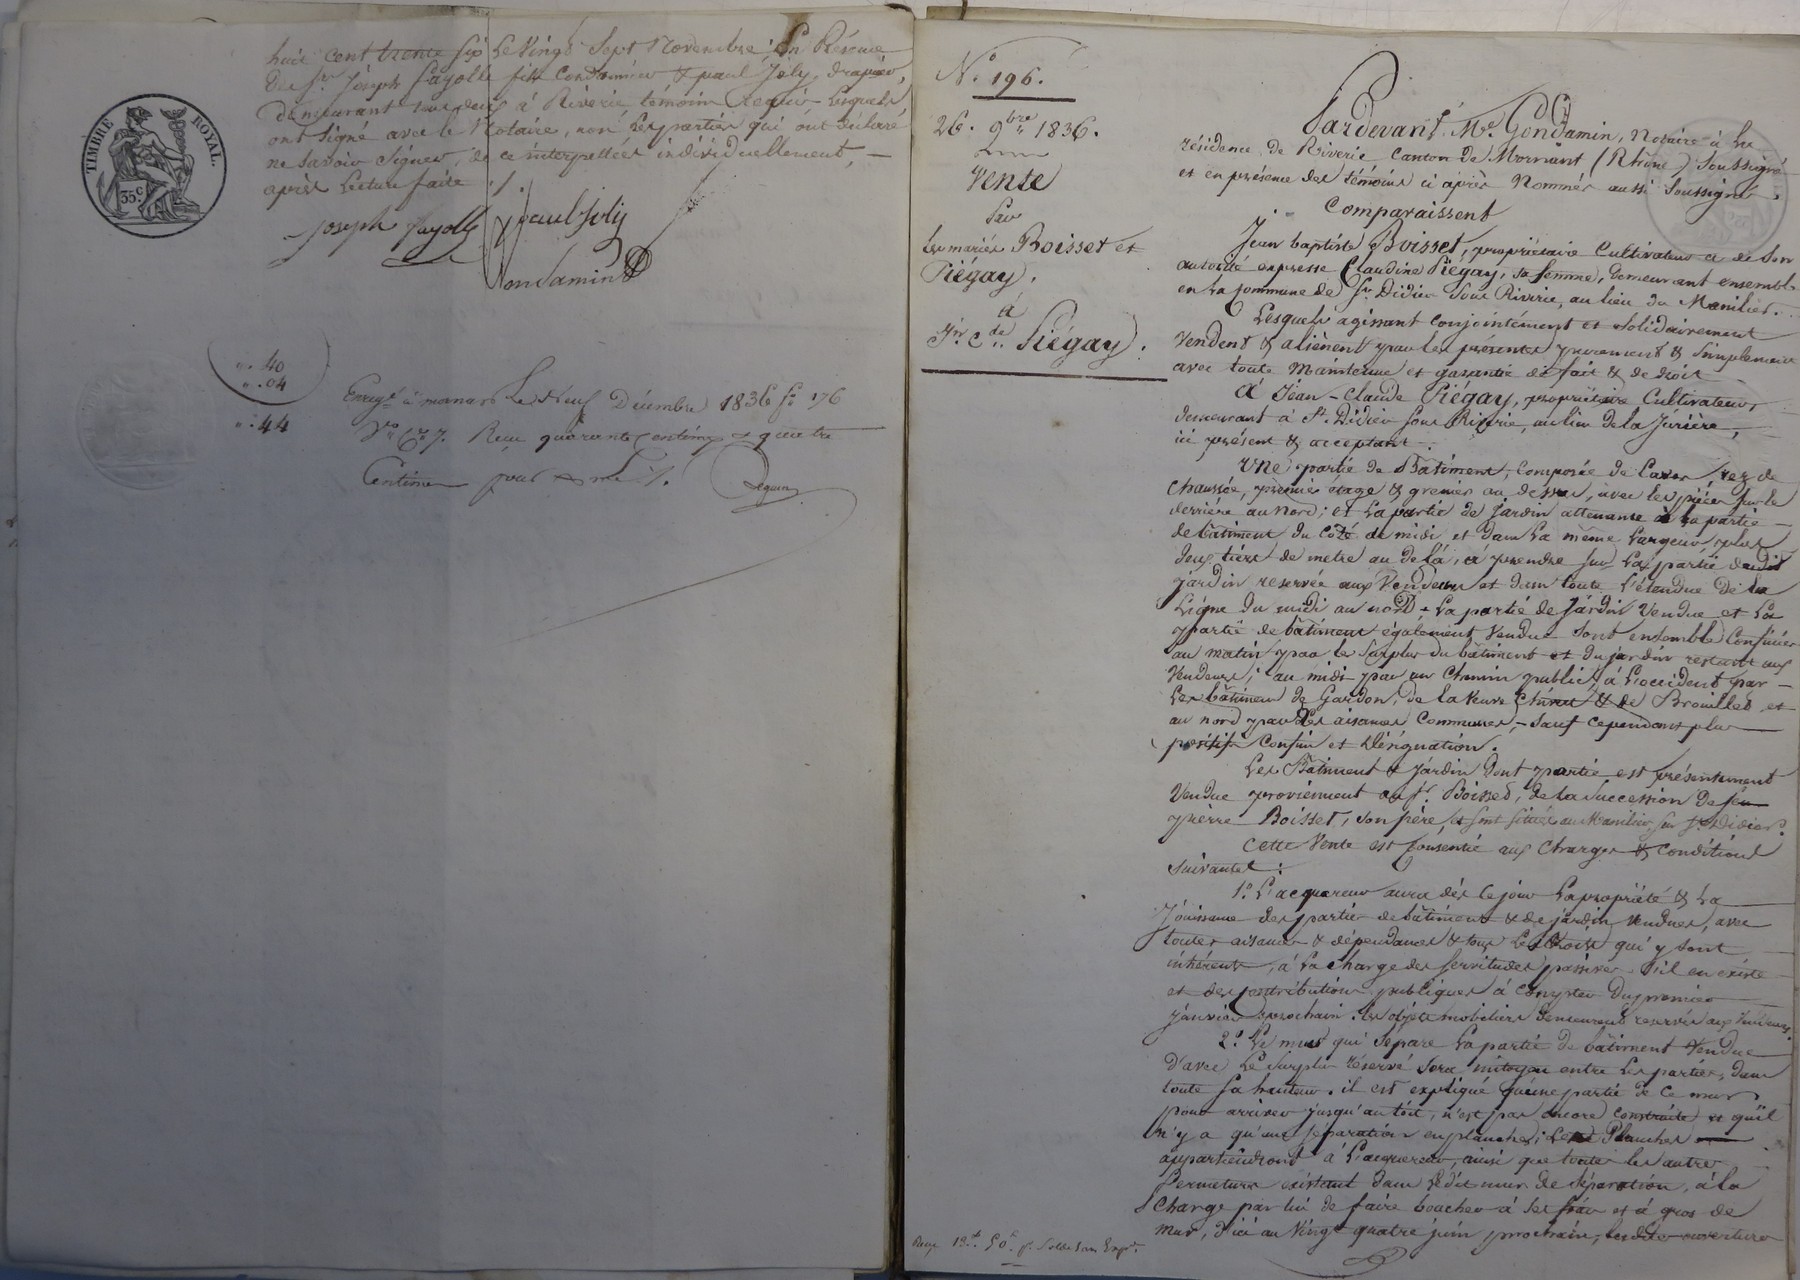 huit cent trente six Le Vingt Sept Novembre ; En Présence
des Srs Joseph Fayolle fils Cordonnier & paul Joly, drapier,
demeurant tous deux à Riverie témoins requis Lesquels
ont signé avec le Notaire, non les parties qui ont déclaré
ne savoir signer, de ce interpellées individuellement, —
après Lecture faite ./.
TIMBRE ROYAL.
35c
Joseph Fayolle paul Joly
Condamin
". 40
". 04
". 44
Enregé à mornant Le Neuf Décembre 1836 fo 176
Vo Ce 7. Reçu quarante centimes & quatre
Centimes pour
No 196.
26. 9bre 1836.
Vente
Par
Les mariés Boisset et
Piégay.
à
Jn Cde Piégay.
Pardevant Me Condamin, Notaire à la
résidence de Riverie Canton de Mornant (Rhône) Soussigné
et en présence des témoins ci après Nommés aussi Soussignés.
Comparaissent
Jean baptiste Boisset, propriétaire Cultivateur & de Son
autorité expresse Claudine Piégay, sa femme, demeurant ensemble
en La Commune de St Didier Sous Riverie, au lieu du Manilier.
Lesquels agissant Conjointement et Solidairement
Vendent & aliènent par les présentes purement & Simplement
avec toute Maintenue et garantie de fait & de droit
À Jean-Claude Piégay, propriétaire Cultivateur,
demeurant à St Didier Sous Riverie, au lieu de la
ici présent & acceptant.
Une partie de Bâtiment, Composée de Caves, rez de
Chaussée, premier étage & grenier au dessus, avec les pièces Sur le
derrière au Nord ; et La partie de Jardin attenante à La partie
de bâtiment du Côté de midi et dans La même Largeur, plus
deux tiers de metre au delà, à prendre sur La partie dudit
jardin reservée aux Vendeurs et dans toute L'étendue de La
Ligne du midi au nord. La partie de Jardin Vendue et La
partie de bâtiment également Vendue Sont ensemble Confinées
au matin par le Surplus du bâtiment et du jardin restant aux
Vendeurs ; au midi par un Chemin public, à L'occident par
Les bâtimens de Gardon, de la Veuve & de Brouillet et
au nord par Les aisances Communes, Sauf cependant plus
positifs Confins et Désignation.
Les Bâtiment & Jardin dont partie est présentement
Vendue proviennent au Sr Boisset, de la Succession de feu
pierre Boisset, Son père, et sont situés au Manilier, sur St Didier.
Cette Vente est Consentie aux Charges & Conditions
Suivantes :
1o L'acquereur aura dès ce jour La propriété & La
Jouissance des parties de bâtiment & de jardin Vendues, avec
toutes aisances & dépendances & tous Les droits qui y sont
inhérents, à La charge des Servitudes passives s'il en existe
et des Contributions publiques à Compter du premier
Janvier prochain. Les objets mobiliers demeurent reservés aux Vendeurs.
2o Le mur qui Sépare La partie de bâtiment Vendue
d'avec Le Surplus réservé Sera mitoyen entre Les parties, dans
toute sa hauteur. il est expliqué qu'une partie de ce mur
pour arriver jusqu'au toit, n'est pas encore construite et qu'il
n'y a qu'une séparation en planches ; Les Planches
appartiendront à L'acquereur, ainsi que toutes les autres
fermetures existant dans Ledit mur de Séparation, à la
Charge par lui de faire boucher à Ses frais et à gros de
mur, d'ici au Vingt quatre juin prochain, Lesdites ouvertures